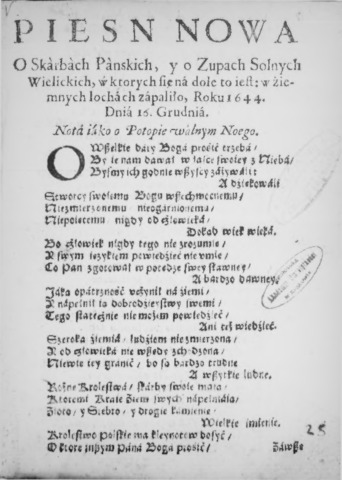 PIESN NOWA
O Skárbách Páńskich, y o Zupach Solnych
Wielickich, w ktorych się ná dole to iest: w źie-
mnych lochách zápaliło, Roku 1644.
Dniá 16. Grudniá.
Notá iáko o Potopie walnym Noego.
O Wßelkie dáry Bogá prośić trzebá/
By ie nam dawał w łásce swoiey z Niebá/
Byśmy ich godnie wßyscy záżywáli:
A dźiękowáli
Stworcy swoiemu Bogu wßechmocnemu/
Niezmierzonemu nieogárnionemu/
Niepoiętemu nigdy od człowieká/
Dokąd wiek wieká.
Bo człowiek nigdy tego nie zrozumie/
Y swym ięzykiem powiedźieć nie umie/
Co Pan zgotował w potędze swey sławney/
A bárdzo dawney/
Jáka opátrzność vczynił ná źiemi/
Y nápełnił ią dobrodzieystwy swemi/
Tego státecznie nie możem powiedźieć/
Ani też wiedźieć.
Szeroka źiemiá ludźiem niezmierzona/
Y od człowieká nie wßędy zchodzona/
Niewie iey gránic/ bo są bárdzo trudne
A wßytkie ludne.
Rożne Krolestwá/ skárby swoie máią/
Ktoremi Kráie źiem swych nápełniáią/
Złoto/ y Srebro/ y drogie kámienie
Wielkie imienie.
Krolestwo Polskie ma kleynotow dosyć/
O ktore inßym Páná Bogá prośić/
Záwße
25